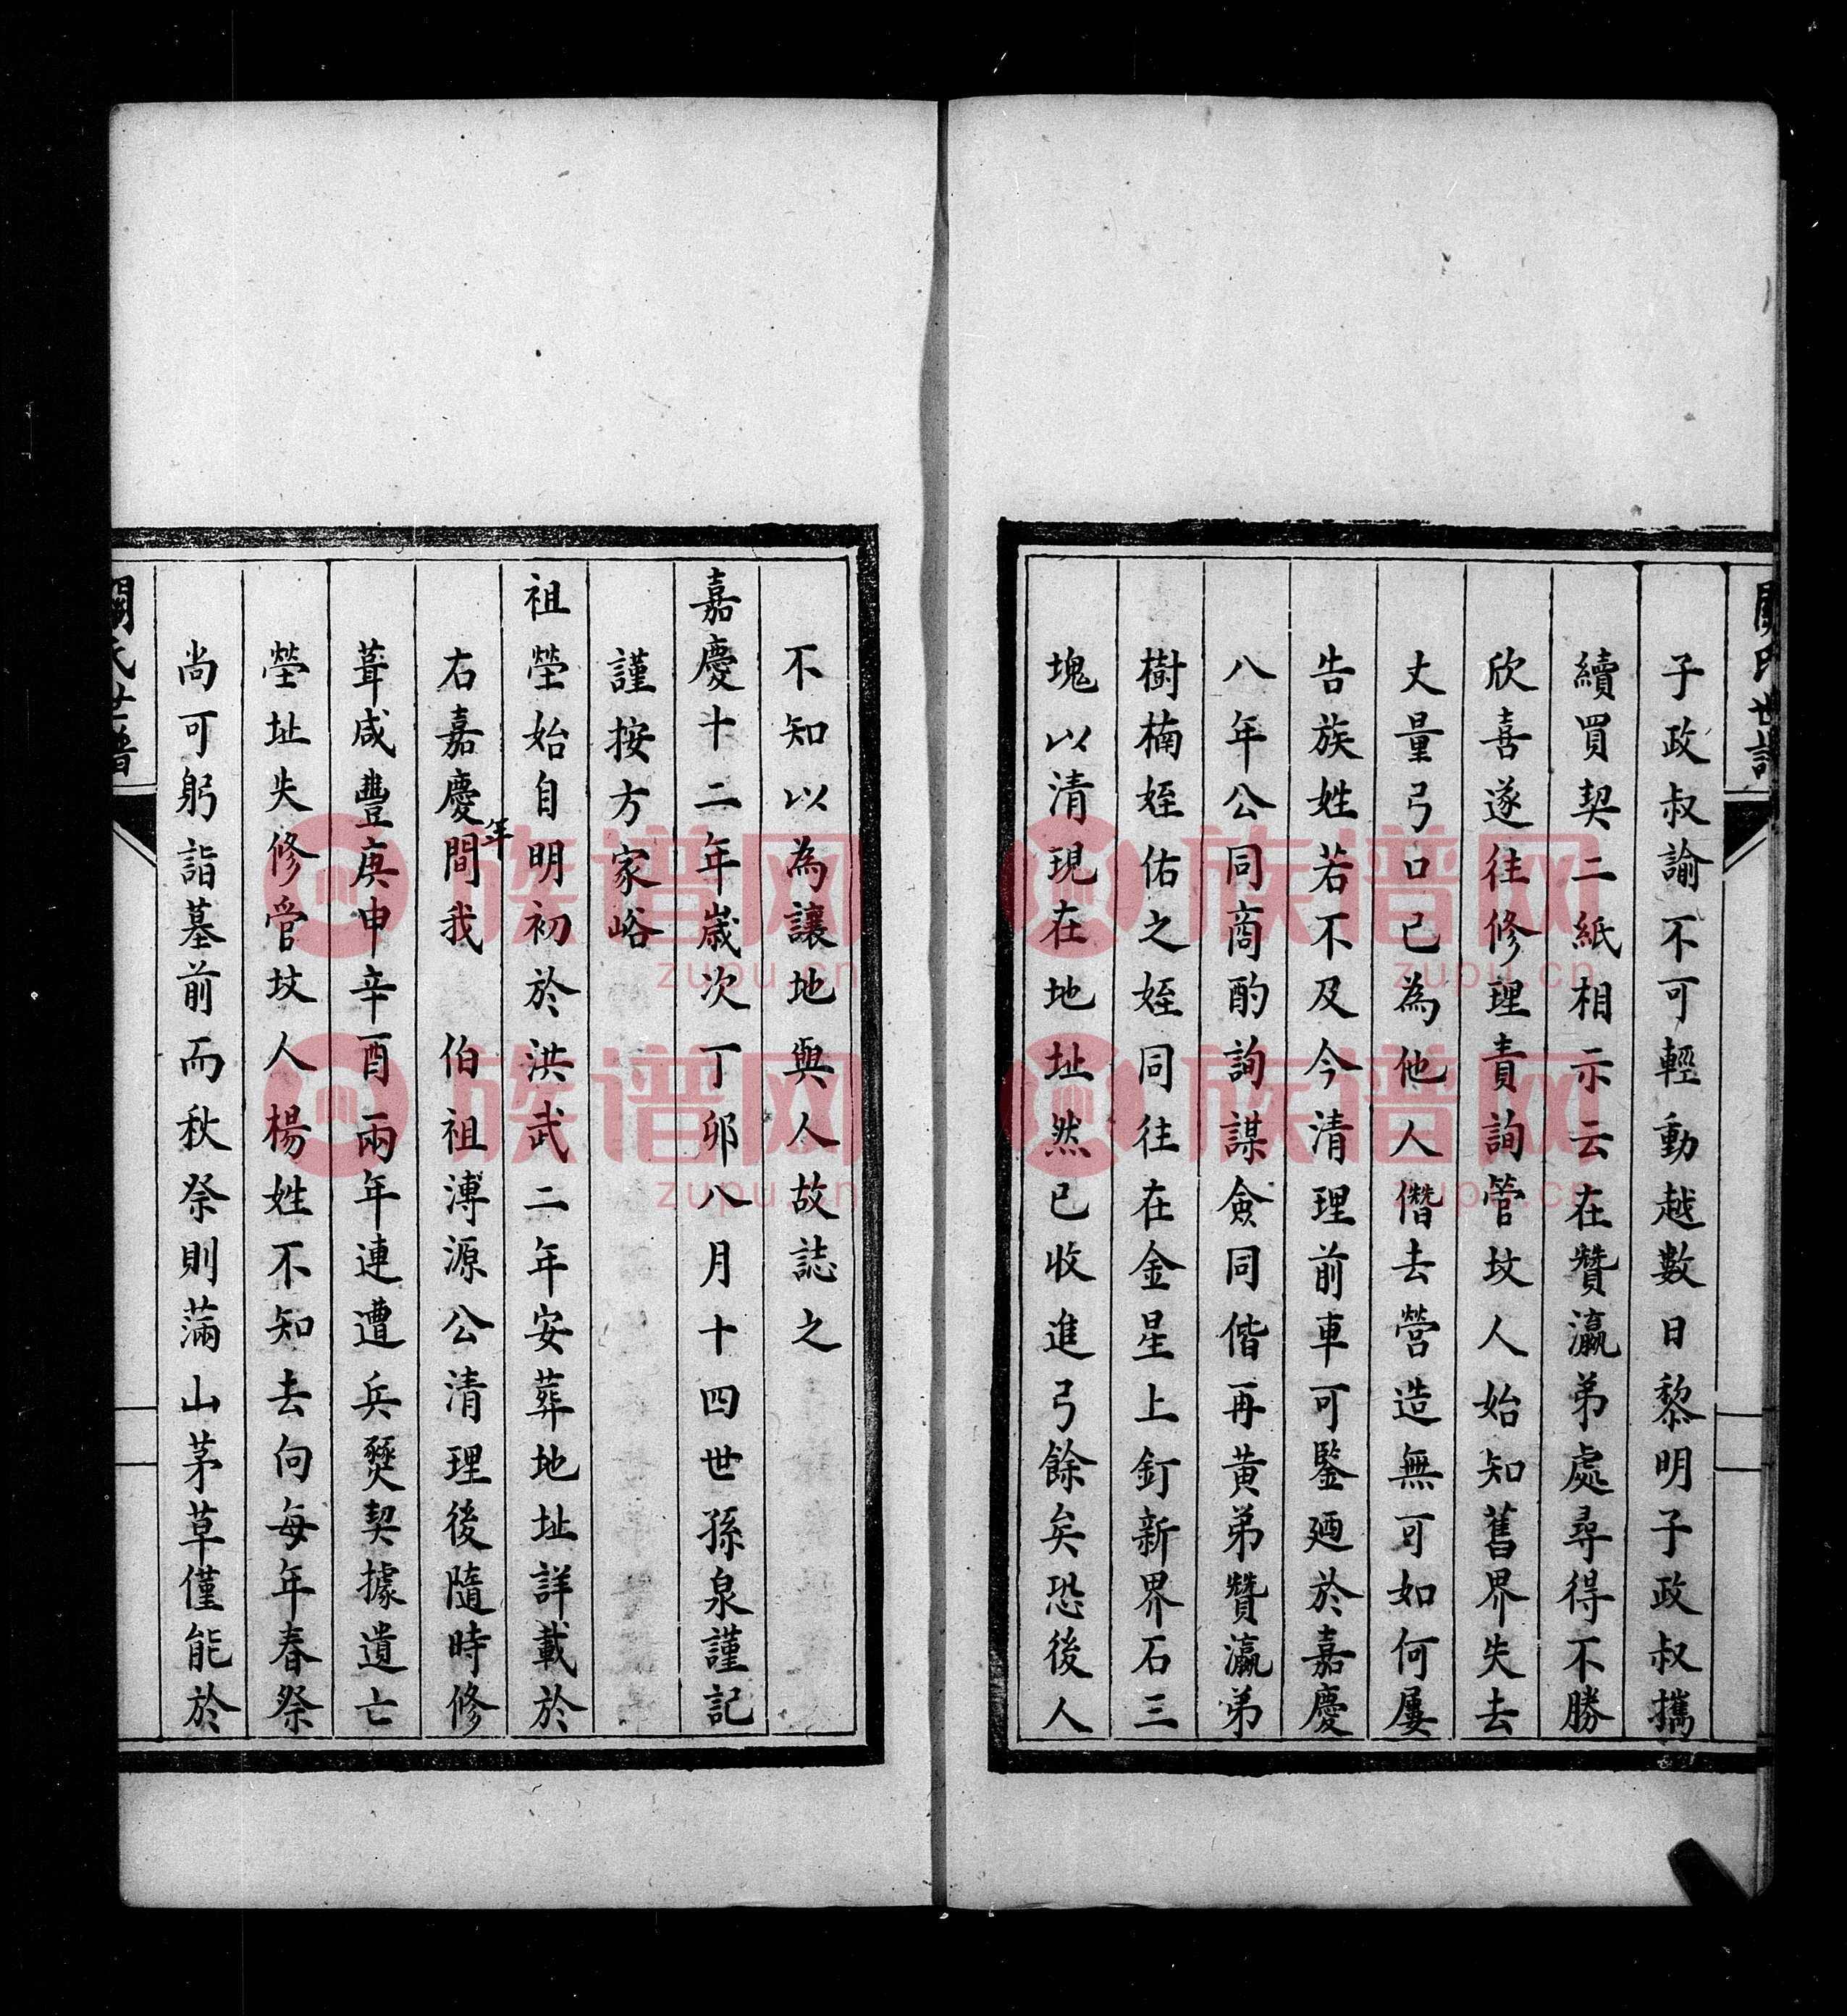 氏世譜
子政叔諭不可輕動越數日黎明子政叔攜
續買契二紙相示云在贊瀛弟處尋得不勝
欣喜遂往修理責詢管坟人始知舊界失去
丈量弓口已為他人僭去營造無可如何屢
告族姓若不及今清理前車可鑒廼於嘉慶
八年公同商酌詢謀僉同偕再黃弟贊瀛弟
樹楠姪佑之姪同往在金星上釘新界石三
塊以清現在地址然已收進弓餘矣恐後人
不知以為讓地與人故誌之
嘉慶十二年歲次丁卯八月十四世孫泉謹記
謹按方家峪
祖塋始自明初於洪武二年安葬地址詳載於
右嘉慶年間我 伯祖溥源公清理後隨時修
葺咸豐庚申辛酉兩年連遭兵燹契據遺亡
塋址失修管坟人楊姓不知去向每年春祭
尚可躬詣墓前而秋祭則滿山茅草僅能於
氏世譜
族谱网
zupu.cn
族谱网
zupu.cn
族谱网
zupu.cn
族谱网
zupu.cn